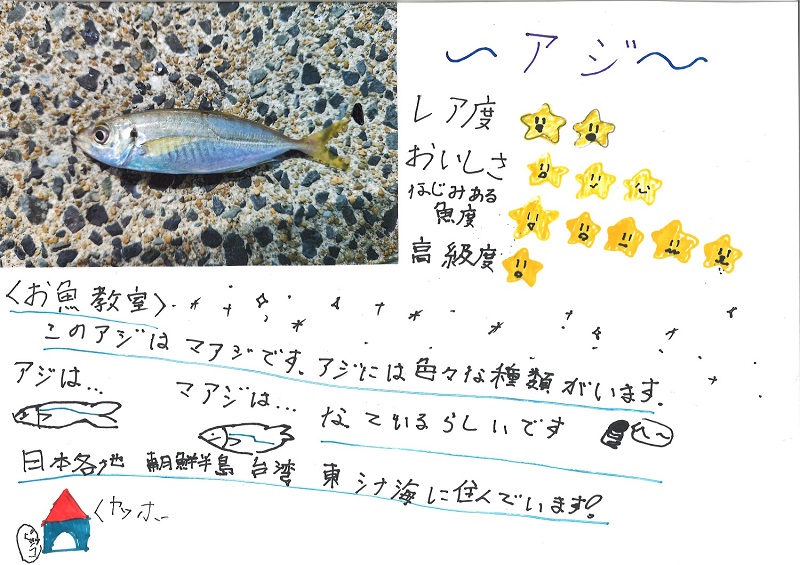 〜アジ〜
レア度
おいしさ
はじみある
魚度
高級度
〈お魚教室〉
このアジはマアジです。アジには色々な種類がいます。
アジは…
マアジは…
なているらしいです
日本各地 朝鮮半島 台湾 東シナ海に住んでいます!
ヤッホー